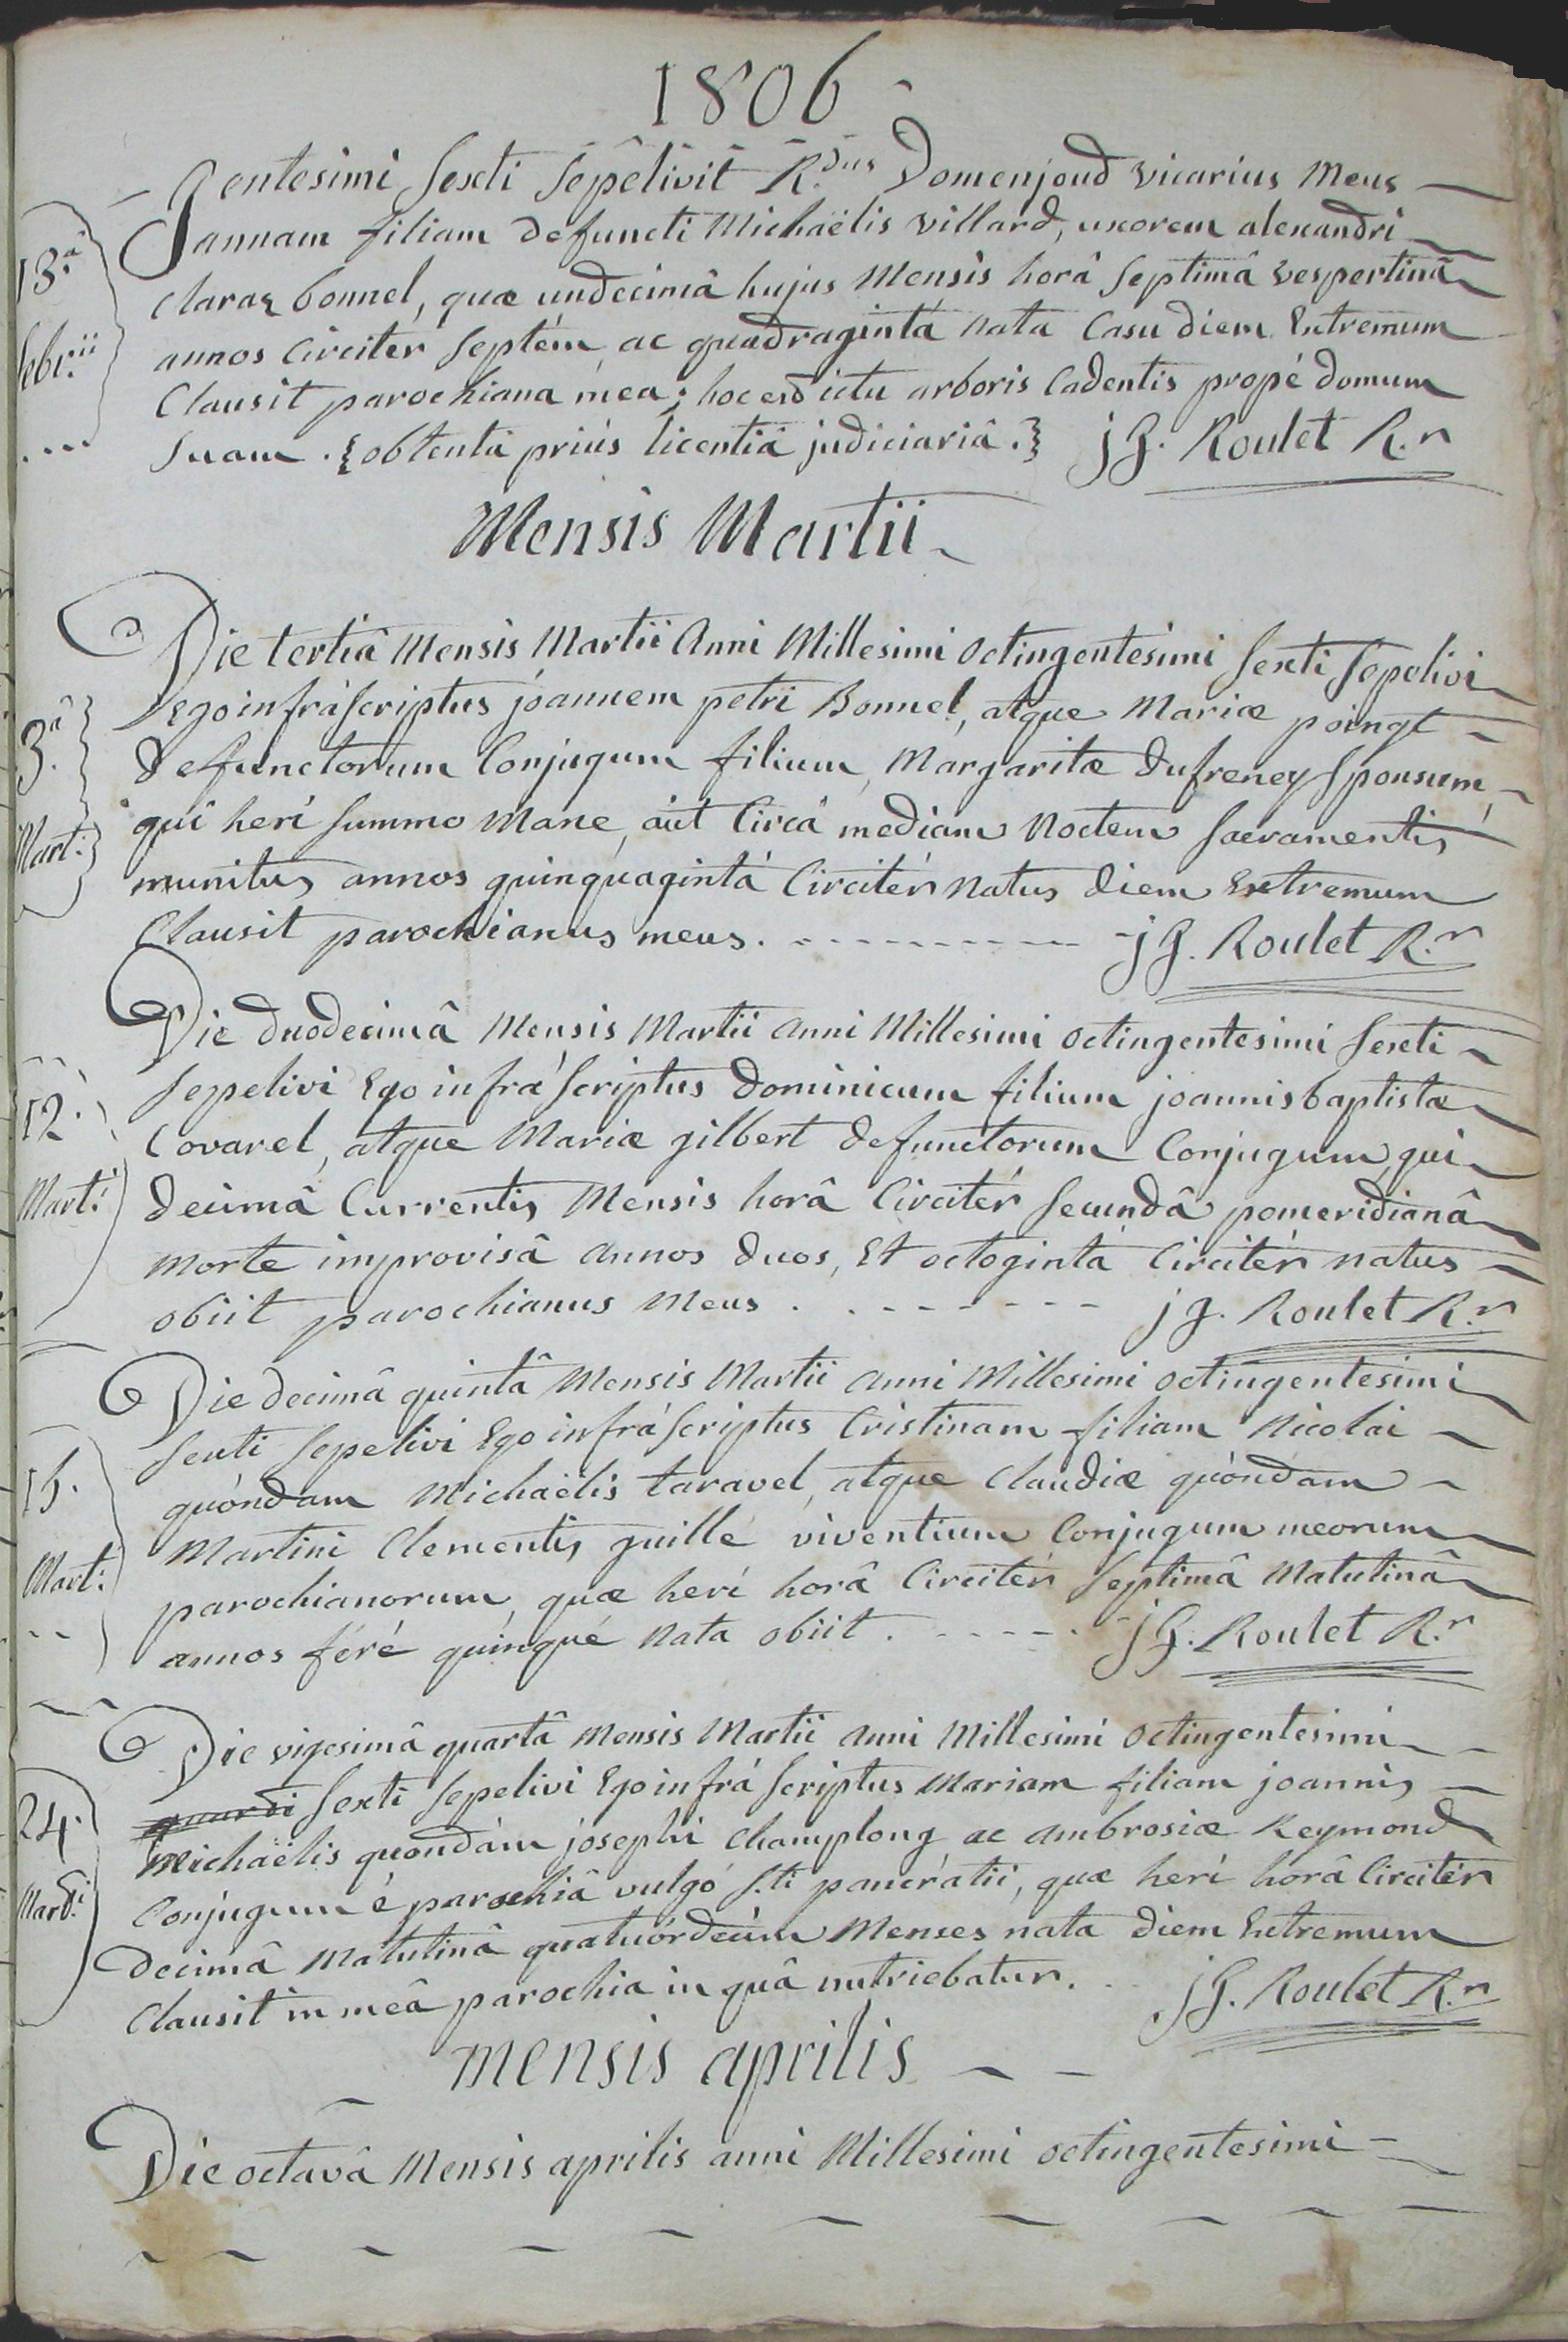 1806
gentesimi sexti sepelivit R.dus Domenjoud vicarius meus
13.a
annam filiam defuncti Michaëlis villard, uxorem alexandri
claraz bonnel, quæ undecimâ hujus Mensis horâ septimâ vespertinâ
febr.ii
annos circiter septém ac quadragintá nata casu diem Extremum
Clausit parochiana mea; hoc est ictu arboris cadentis propé domum
suam. {obtentâ priús licentiâ judiciariâ.} j G. Roulet R.r
Mensis Martii
Die tertiâ Mensis Martii Anni Millesimi octingentesimi sexti sepelivi
3.a
ego infrá scriptus joannem petri Bonnel, atque Mariæ poingt
defunctorum Conjugum filium, Margaritæ dufreney sponsum,
Mart.i
qui herí summo Mane, aút Circá mediam Noctem sacramentis
munitus annos quinquagintá Circitér natus diem Extremum
Clausit parochianus meus. j G. Roulet R.r
Die duodecimâ Mensis Martii Anni Millesimi octingentesimi sexti
12.
sepelivi Ego infrá scriptus dominicum filium joannis baptistæ
Covarel, atque Mariæ gilbert defunctorum Conjugum, qui
Mart.i
decimâ Currentis Mensis horâ Circitér secundâ pomeridianâ
Morte improvisâ annos duos, Et octogintá Circitér natus
obiit parochianus Meus. j G. Roulet R.r
Die decimâ quintâ Mensis Martii Anni Millesimi octingentesimi
sexti sepelivi Ego infrá scriptus Cristinam filiam Nicolai
15.
quóndam Michaëlis taravel, atque Claudiæ quóndam
Martini Clementis guille viventium Conjugum meorum
Mart.i
parochianorum, quæ herí horâ Circitér septimâ Matutinâ
annos féré quinqué nata obiit. j G. Roulet R.r
Die vigesimâ quartâ Mensis Martii Anni Millesimi octingentesimi
24.
sexti sepelivi Ego infrá scriptus Mariam filiam joannis
Michaëlis quondám josephi Champlong ac ambrosiæ Reymond
Mart.i
Conjugum é parochiâ vulgó S.ti pancrátii, quæ herí horâ Circitér
decimâ Matutinâ quatuórdecím Menses nata diem Extremum
Clausit in meâ parochia in quâ nutriebatur. j G. Roulet R.r
mensis aprilis
Die octavâ Mensis aprilis anni Millesimi octingentesimi